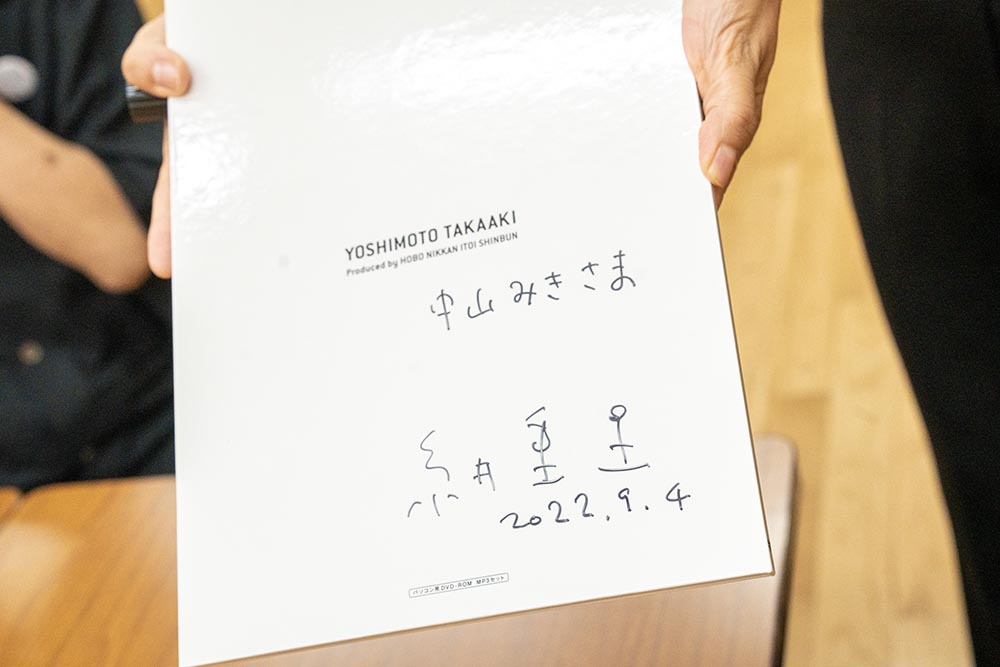 YOSHIMOTO TAKAAKI
Produced by HOBO NIKKAN ITOI SHINBUN
中山みきさま
糸井重里
2022.9.4
パソコン用DVD-ROM MP3セット